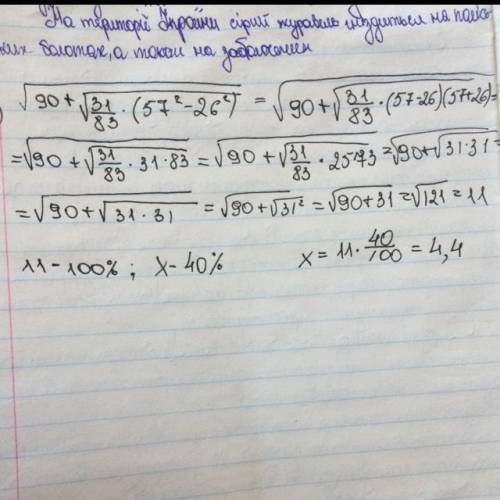 На території України сірий журавель гніздиться на поліс-
ких болотах, а також на заболочен
√(90 + √(31/83 · (57² - 26²))) = √(90 + √(31/83 · (57-26)(57+26))) =
= √(90 + √(31/83 · 31 · 83)) = √(90 + √(31/83 · 2573)) = √(90 + √(31 · 31)) =
= √(90 + √(31 · 31)) = √(90 + √31²) = √(90 + 31) = √121 = 11
11 - 100% ; x - 40% x = 11 · 40/100 = 4,4